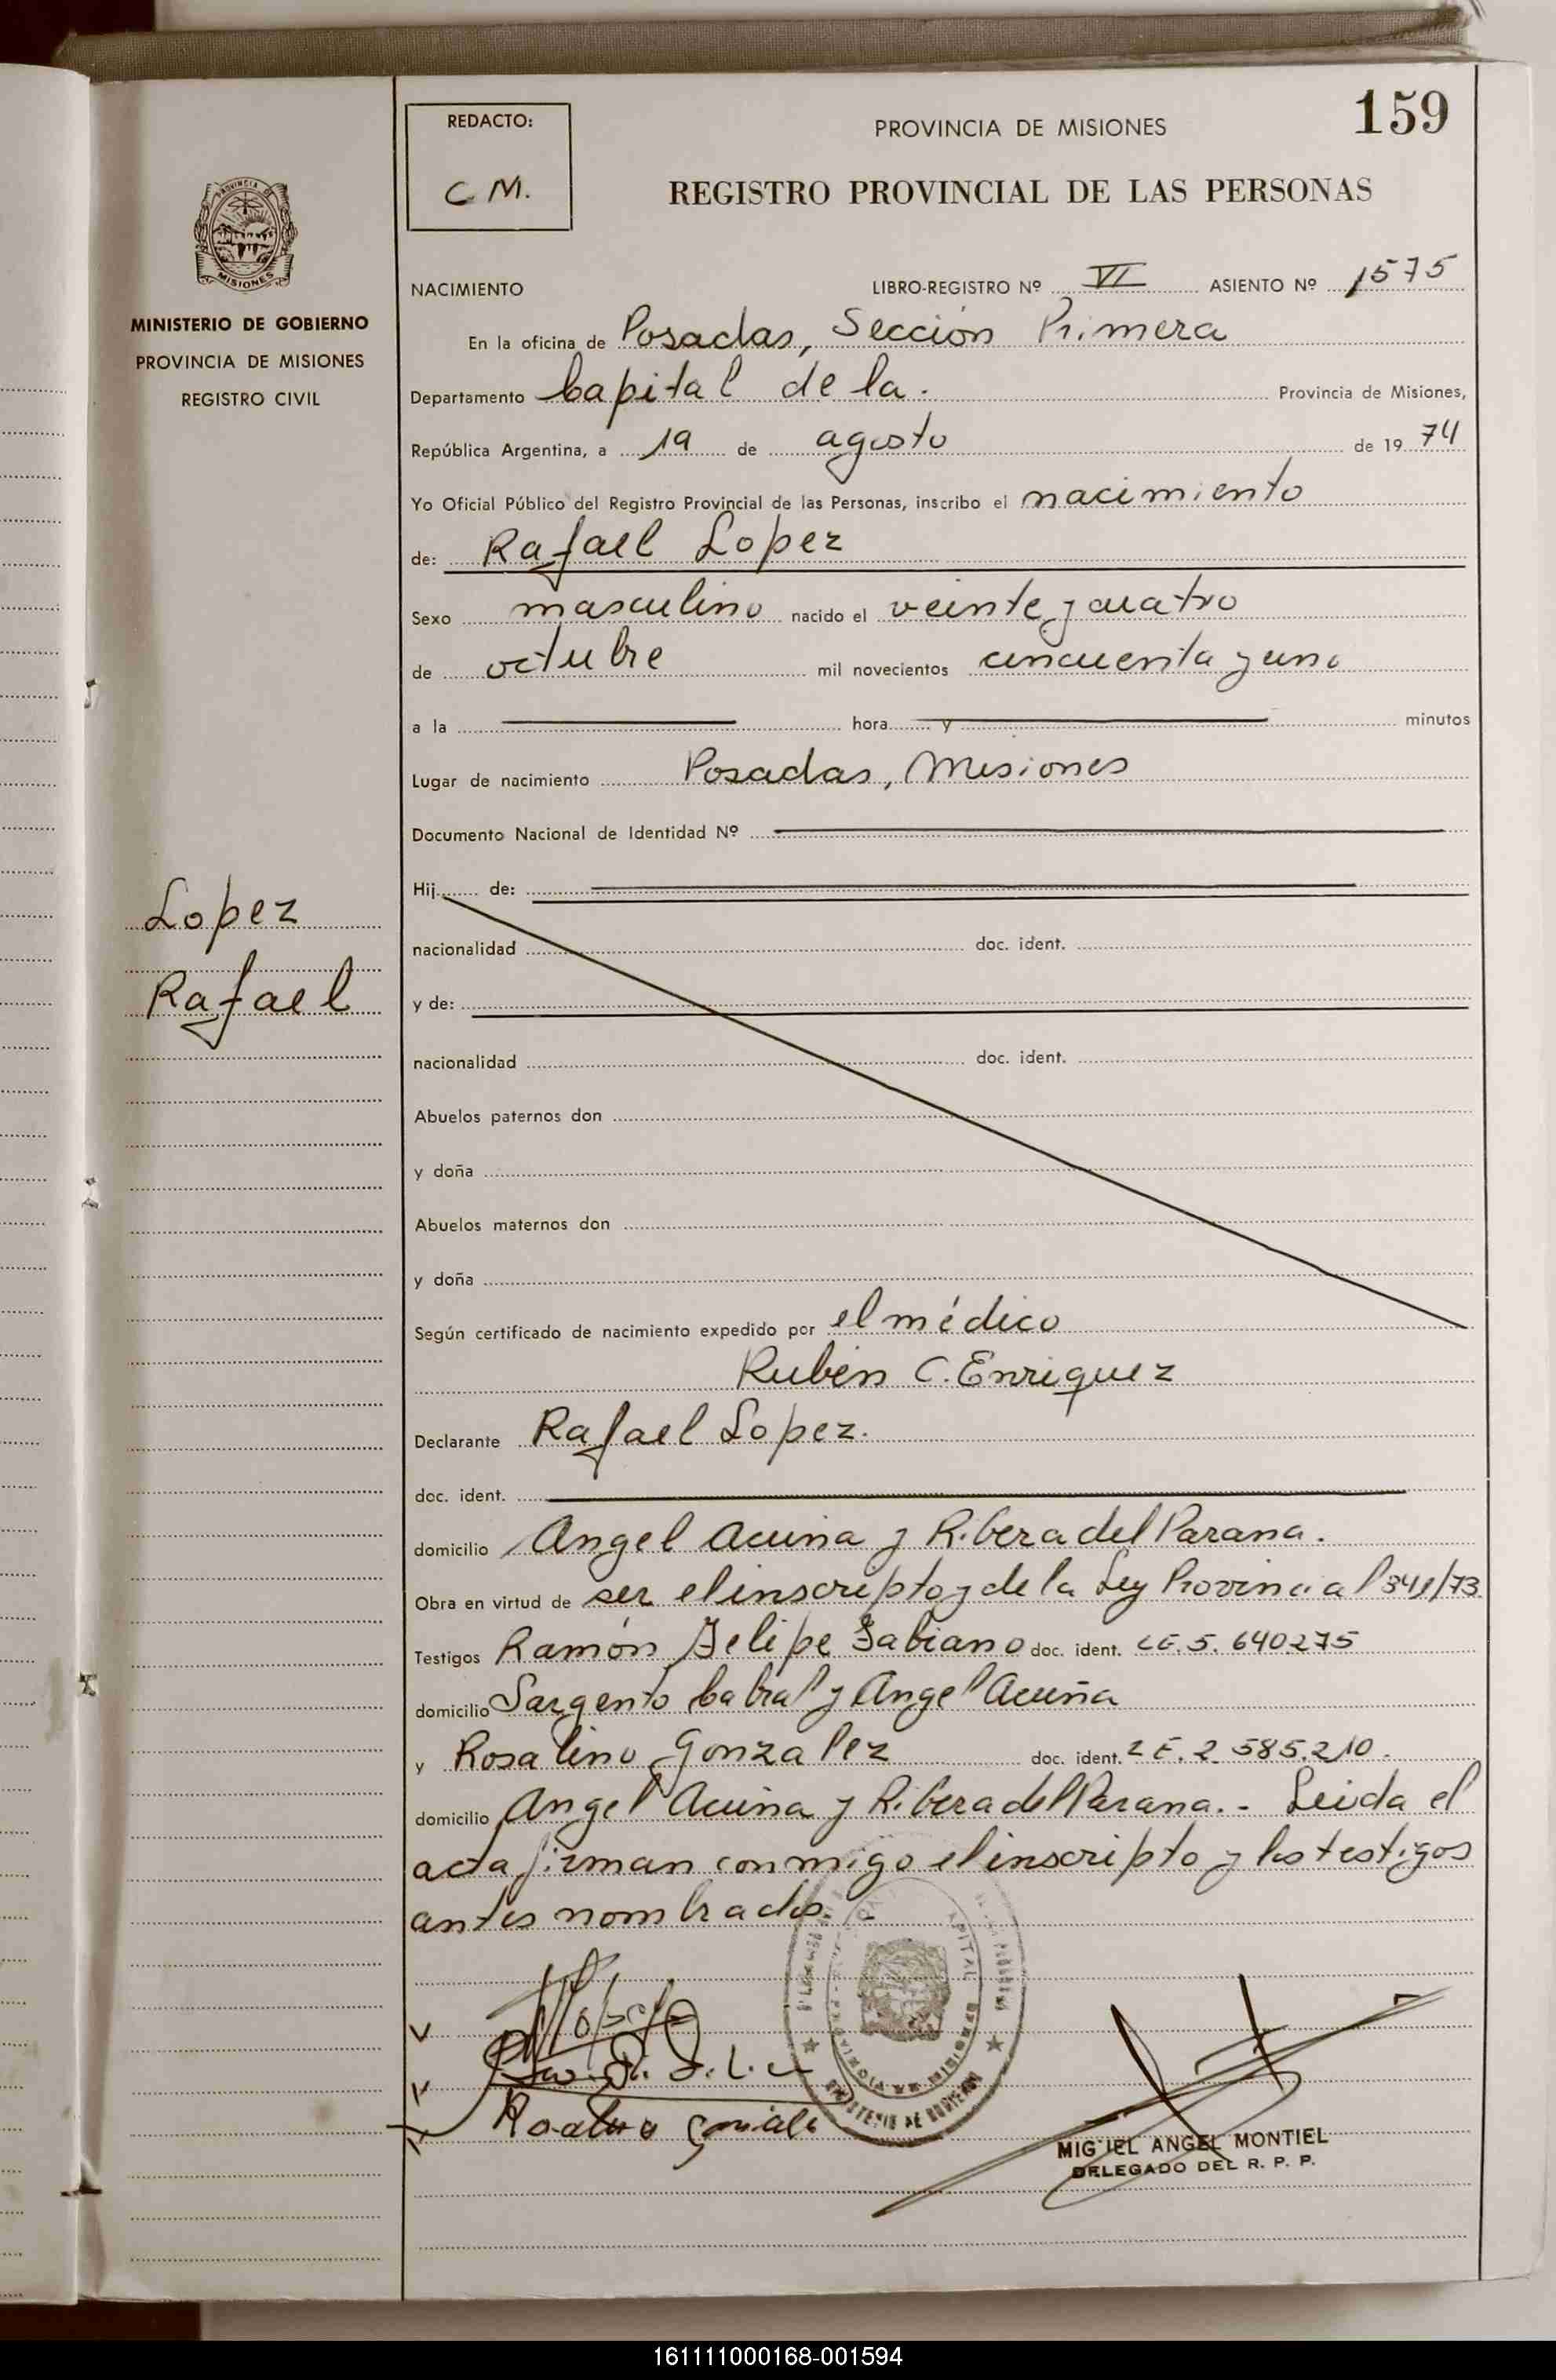 159
REDACTO:
C. M.
PROVINCIA DE MISIONES
REGISTRO PROVINCIAL DE LAS PERSONAS
PROVINCIA DE
MISIONES
MINISTERIO DE GOBIERNO
PROVINCIA DE MISIONES
REGISTRO CIVIL
Lopez
Rafael
NACIMIENTO LIBRO-REGISTRO Nº VI ASIENTO Nº 1575
En la oficina de Posadas, Sección Primera
Departamento Capital de la. Provincia de Misiones,
República Argentina, a 19 de agosto de 1974
Yo Oficial Público del Registro Provincial de las Personas, inscribo el nacimiento
de: Rafael Lopez
Sexo masculino nacido el veinte y cuatro
de octubre mil novecientos cincuenta y uno
a la hora y minutos
Lugar de nacimiento Posadas, Misiones
Documento Nacional de Identidad Nº
Hij de:
nacionalidad doc. ident.
y de:
nacionalidad doc. ident.
Abuelos paternos don
y doña
Abuelos maternos don
y doña
Según certificado de nacimiento expedido por el médico
Rubén C. Enriquez
Declarante Rafael Lopez.
doc. ident.
domicilio Angel Acuina y Ribera del Parana.
Obra en virtud de ser el inscripto y de la Ley Provincial 341/73.
Testigos Ramón Felipe Fabiano doc. ident. LE. 5. 640.275
domicilio Sargento Cabral y Angel Acuña
y Rosalino Gonzalez doc. ident. LE. 2 585.210.
domicilio Angel Acuina y Ribera del Parana. - Leida el
acta firman conmigo el inscripto y los testigos
antes nombrados. -
MIGUEL ANGEL MONTIEL
DELEGADO DEL R. P. P.
161111000168-001594